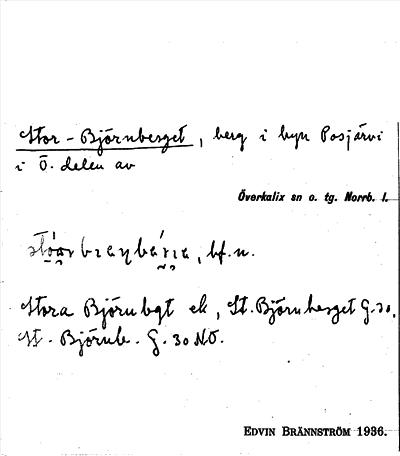 Stor-Björnberget, berg i byn Posjärvi
i Ö. delen av
Överkalix sn o. tg. Norrb. l.
bf. n.
Stora Björnbgt ek, St. Björnberget G. 30,
St. Björnb. G. 30 NO.
EDVIN BRÄNNSTRÖM 1936.